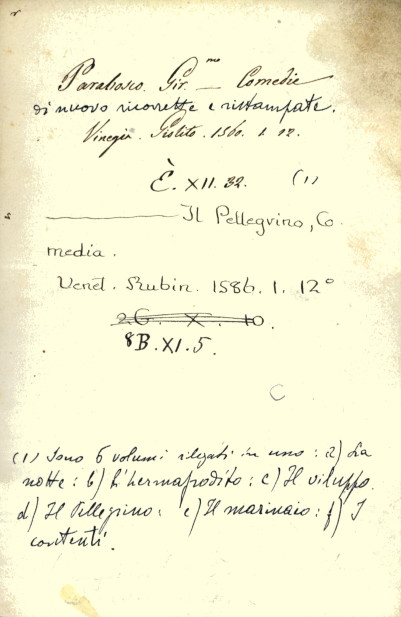 Parabosco. Gir.mo — Comedie
di nuovo ricorrette e ristampate.
Vinegia. Giolito. 1560. 1. 12.
È. XII. 32. (1)
——— Il Pellegrino, Co
media.
Venet. Rubin. 1586. 1. 12°
26. X. 10.
8B. XI. 5.
C
(1) Sono 6 volumi rilegati in uno: a) La
notte: b) L'hermafrodito: c) Il viluppo.
d) Il Pellegrino: e) Il marinaio: f) I
contenti.